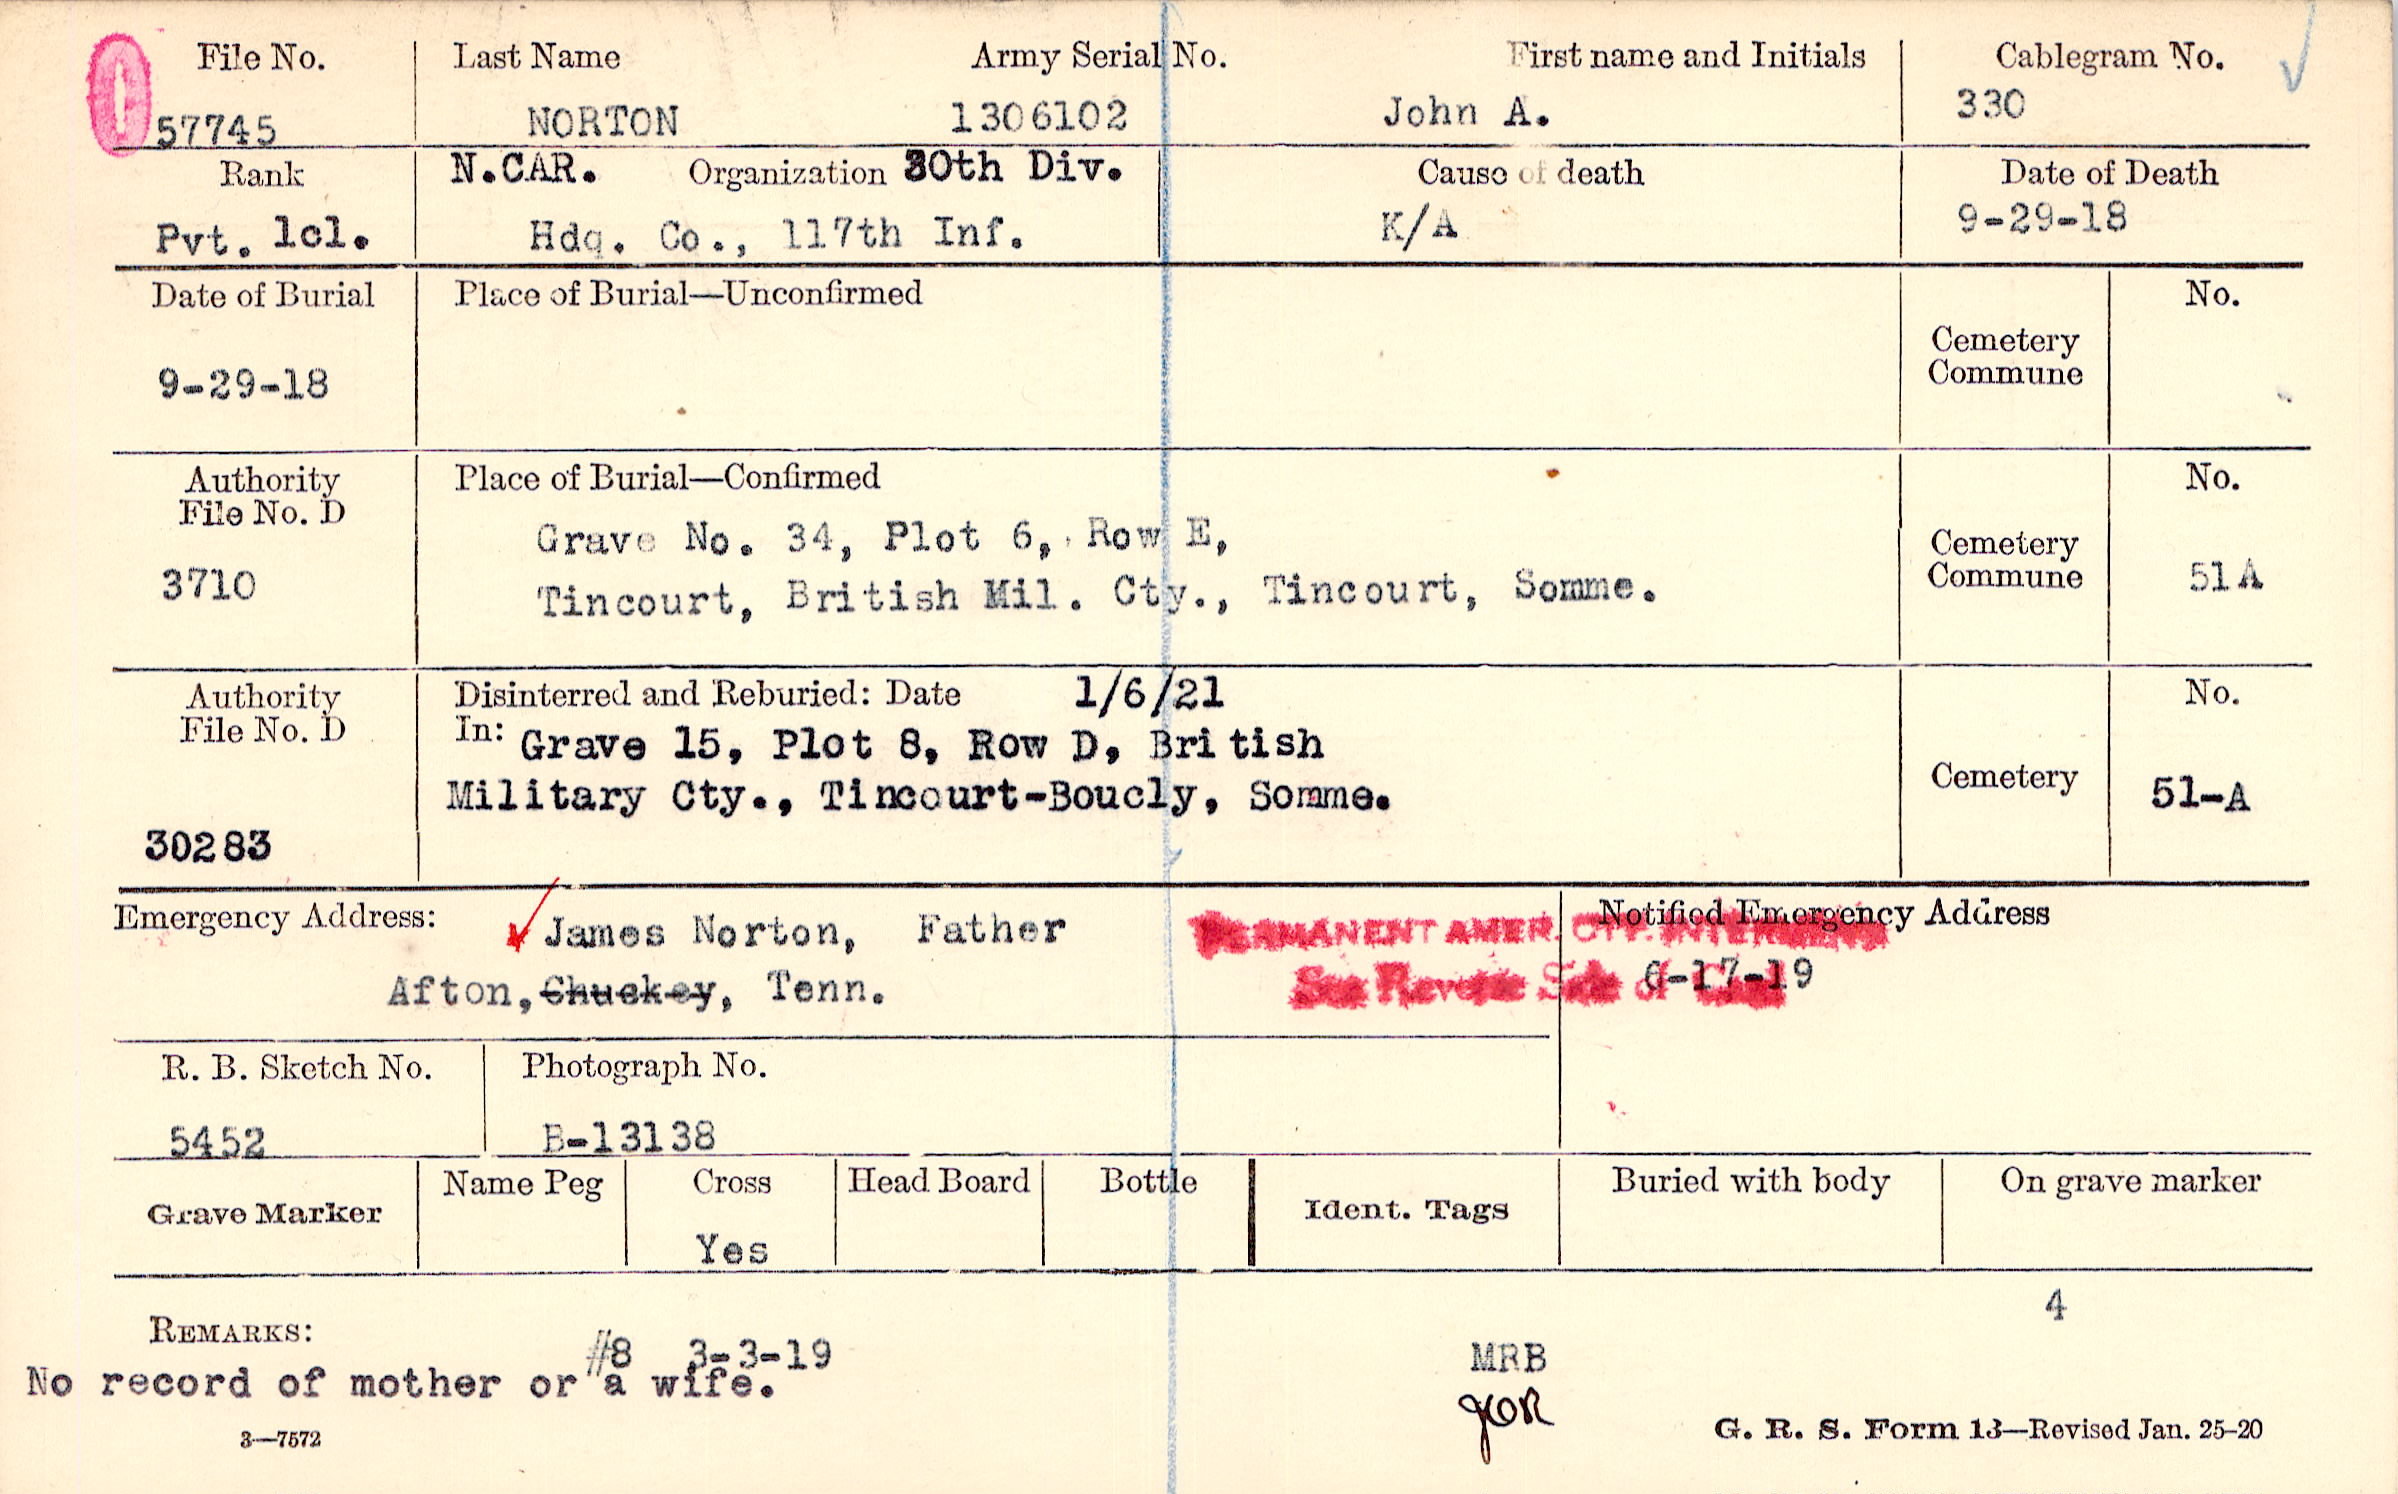 File No. Last Name Army Serial No. First name and Initials Cablegram No.
57745 NORTON 1306102 John A. 330
Rank N.CAR. Organization 30th Div. Cause of death Date of Death
Pvt. 1cl. Hdq. Co., 117th Inf. K/A 9-29-18
Date of Burial Place of Burial—Unconfirmed No.
Cemetery
Commune
9-29-18
Authority Place of Burial—Confirmed No.
File No. D
Grave No. 34, Plot 6, Row E,
Cemetery
3710 Tincourt, British Mil. Cty., Tincourt, Somme. Commune 51A
Authority Disinterred and Reburied: Date 1/6/21 No.
File No. D In: Grave 15, Plot 8, Row D, British
Military Cty., Tincourt-Boucly, Somme. Cemetery 51-A
30283
Emergency Address: James Norton, Father Notified Emergency Address
PERMANENT AMER. CTY. INTERMENT
Afton, Chuckey, Tenn. 6-17-19
See Reverse Side of Card
R. B. Sketch No. Photograph No.
5452 B-13138
Grave Marker Name Peg Cross Head Board Bottle Ident. Tags Buried with body On grave marker
Yes
4
REMARKS: #8 3-3-19 MRB
No record of mother or a wife.
JOR
3—7572 G. R. S. Form 13—Revised Jan. 25-20